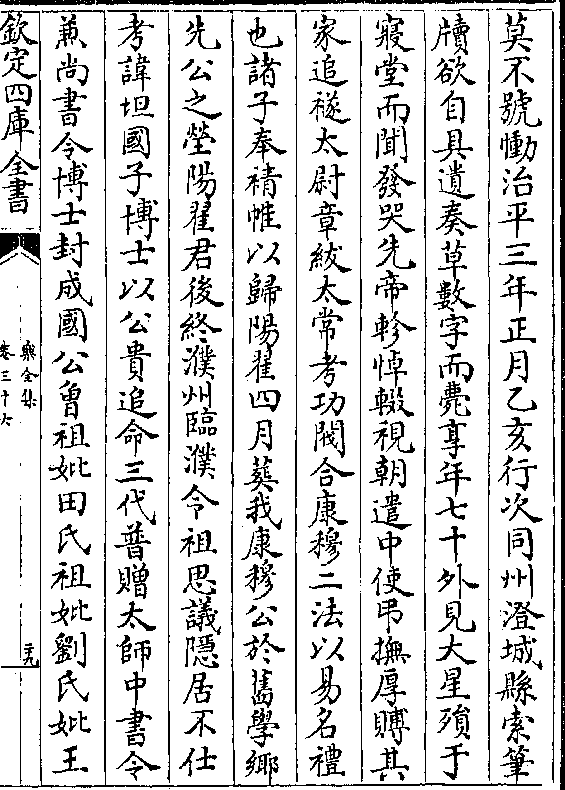 莫不號慟治平三年正月乙亥行次同州澄城縣索筆
牘欲自具遺奏草數字而薨享年七十外見大星殞于
寢堂而聞發哭先帝軫悼輟視朝遣中使弔撫厚賻其
家追襚太尉章紱太常考功閥合康穆二法以易名禮
也諸子奉禙帷以歸陽翟四月葬我康穆公於舊學鄉
先公之塋陽翟君後終濮州臨濮令祖思議隱居不仕
考諱坦國子博士以公貴追命三代普贈太師中書令
兼尚書令博士封成國公曾祖妣田氏祖妣劉氏妣王
欽定四庫全書
樂全集
卷三十六
二十九